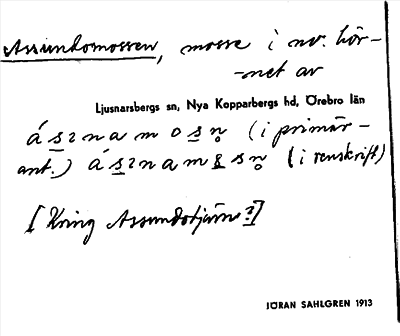 Assundomossen, mosse i nv. hör-
net av
Ljusnarsbergs sn, Nya Kopparbergs hd, Örebro län
(i primär-
ant.) (i renskrift)
[Kring Assundstjärn?]
JÖRAN SAHLGREN 1913